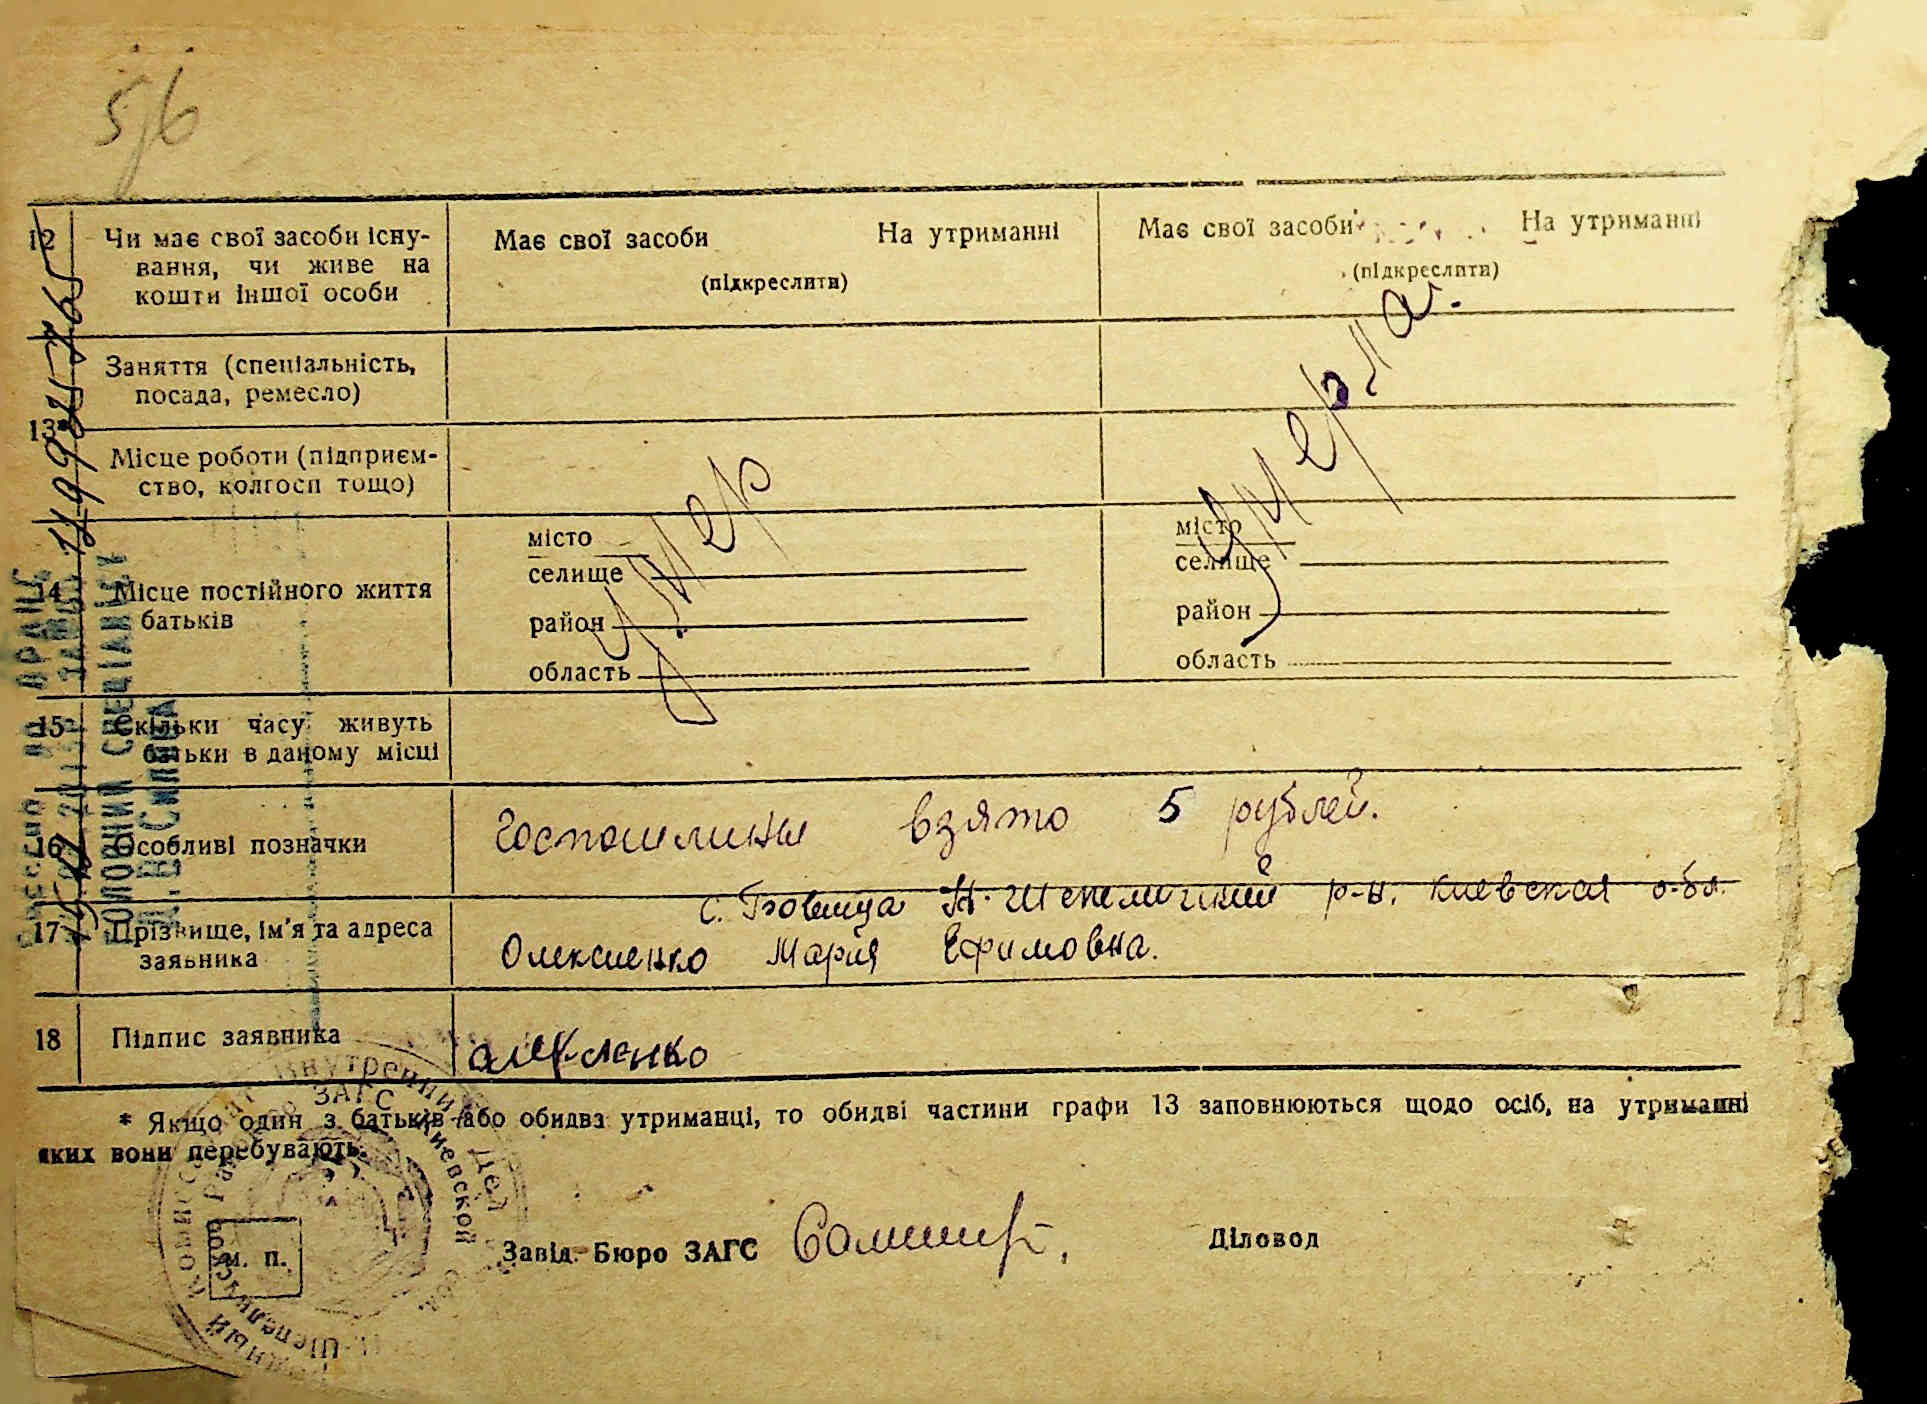 5/6
12 Чи має свої засоби існу-
вання, чи живе на
кошти іншої особи
Має свої засоби На утриманні
(підкреслити)
Має свої засоби На утриманні
(підкреслити)
13* Заняття (спеціальність,
посада, ремесло)
Місце роботи (підприєм-
ство, колгосп тощо)
умер
умерла.
14 Місце постійного життя
батьків
місто
селище
район
область
місто
селище
район
область
15 Скільки часу живуть
батьки в даному місці
16 Особливі позначки
Госпошлины взято 5 рублей.
17 Прізвище, ім'я та адреса
заявника
Н. Шепелический р-н. Киевская обл.
Олексиенко Мария Ефимовна.
18 Підпис заявника
* Якщо один з батьків або обидва утриманці, то обидві частини графи 13 заповнюються щодо осіб, на утриманні
яких вони перебувають.
м. п.
Завід. Бюро ЗАГС
Діловод
внутренни дел
ЗАГС Киевской